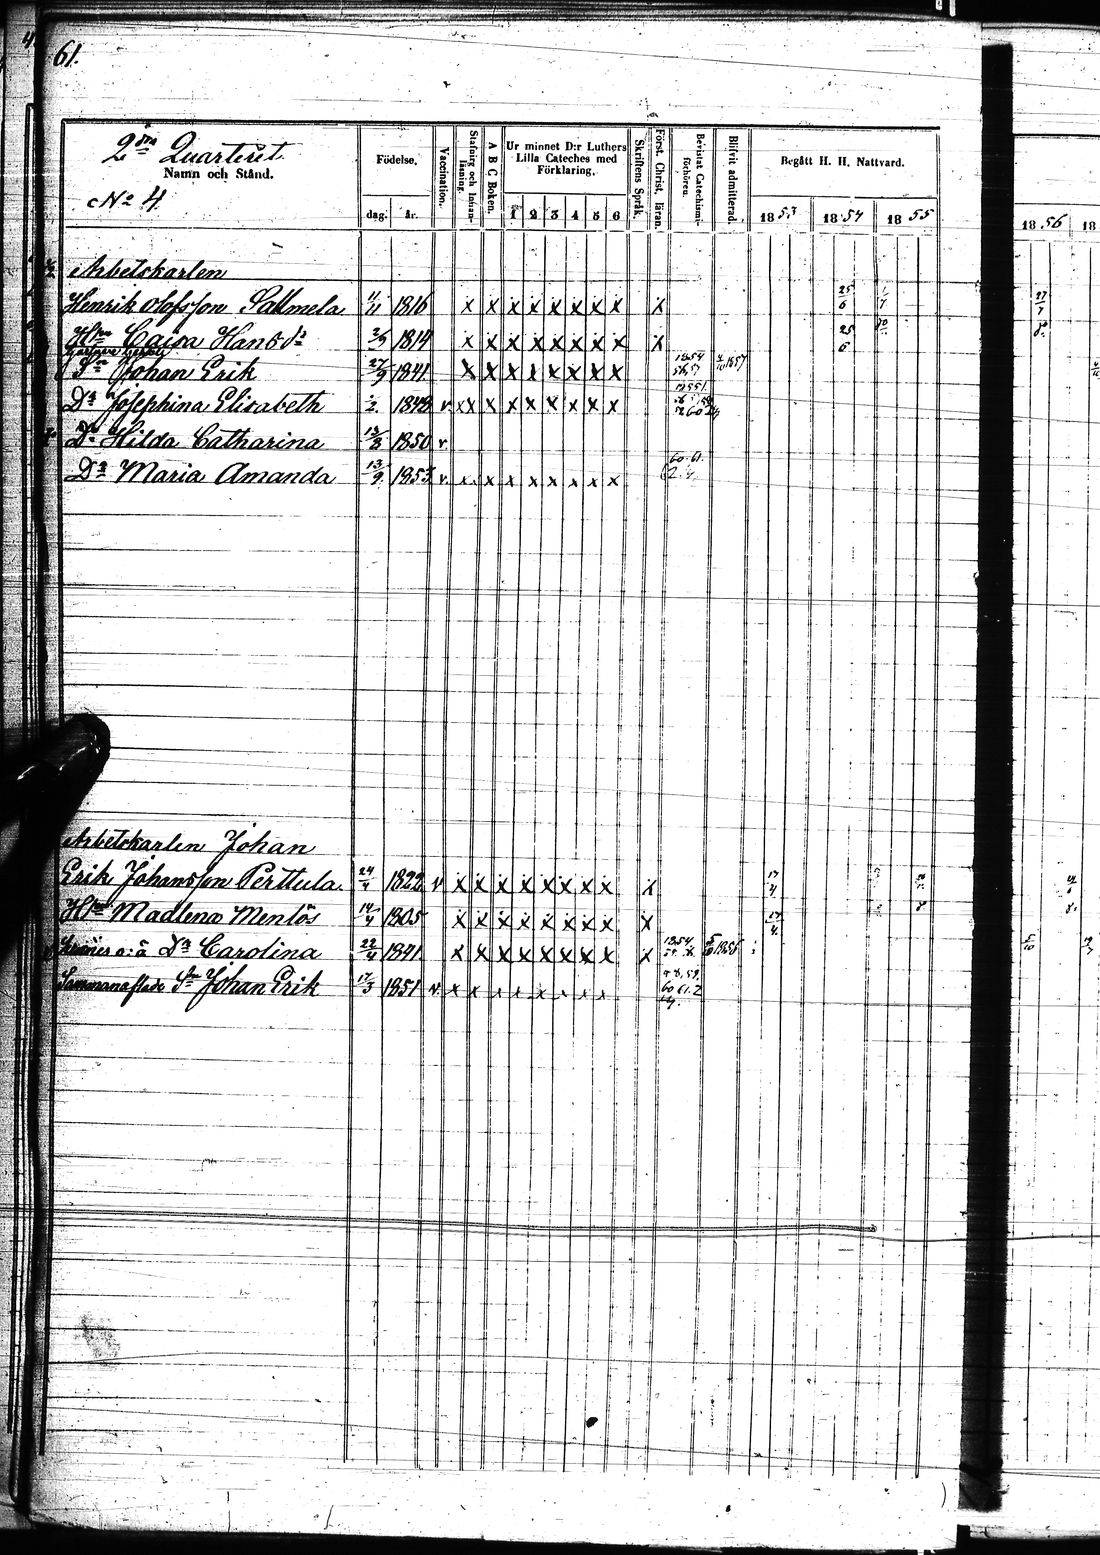 61.
2dra Quarteret.
Namn och Stånd.
No 4
Födelse.
dag. år.
Vaccination.
Stafning och Innan-läsning.
A B C Boken.
Ur minnet D:r Luthers
Lilla Cateches med
Förklaring.
1 2 3 4 5 6
Skriftens Språk.
Först. Christ. läran.
Bevistat Catechismi-förhören.
Blifvit admitterad.
Begått H. H. Nattvard.
1853 1854 1855
1856 18
Arbetskarlen
Henrik Olofsson Salmela 11/11 1816 x x x x x x x x x 25/6 1/7 27/7
Hun Caisa Hansdr 1814 x x x x x x x x x 25/6
Sn Johan Erik 27/9 1841 x x x x x x x x 1854 1857
Dr Josephina Elisabeth 1848 v. x x x x x x x x x
Dr Hilda Catharina 13/8 1850 v.
Dr Maria Amanda 13/9 1853 v. x x x x x x x x 60. 61.
Arbetskarlen Johan
Erik Johansson Perttula. 24/4 1822 v x x x x x x x x x 17/4
Hun Madlena Menlös 14/4 1805 x x x x x x x x x 17/4
Dr Carolina 22/4 1841 x x x x x x x x x 1854 1856 5/10
Sammanaflade Sn Johan Erik 17/3 1851 v. x x x x x x x x 58, 59, 60 61. 2